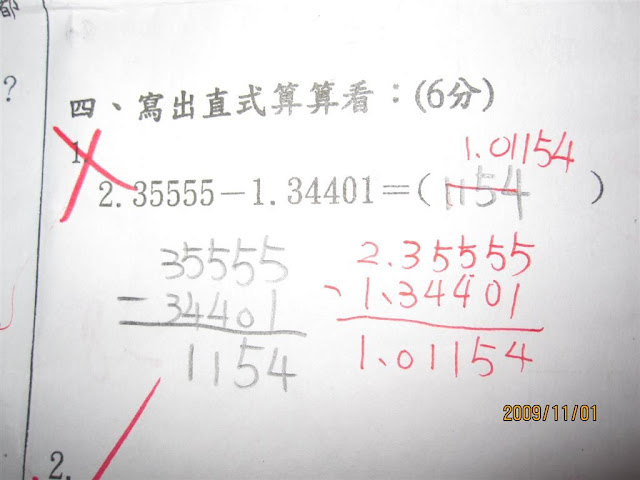 都
?
四、寫出直式算算看：(6分)
1.
1.01154
2.35555－1.34401＝( 1154 )
35555
－34401
1154
2.35555
、1.34401
1.01154
2009/11/01
2.